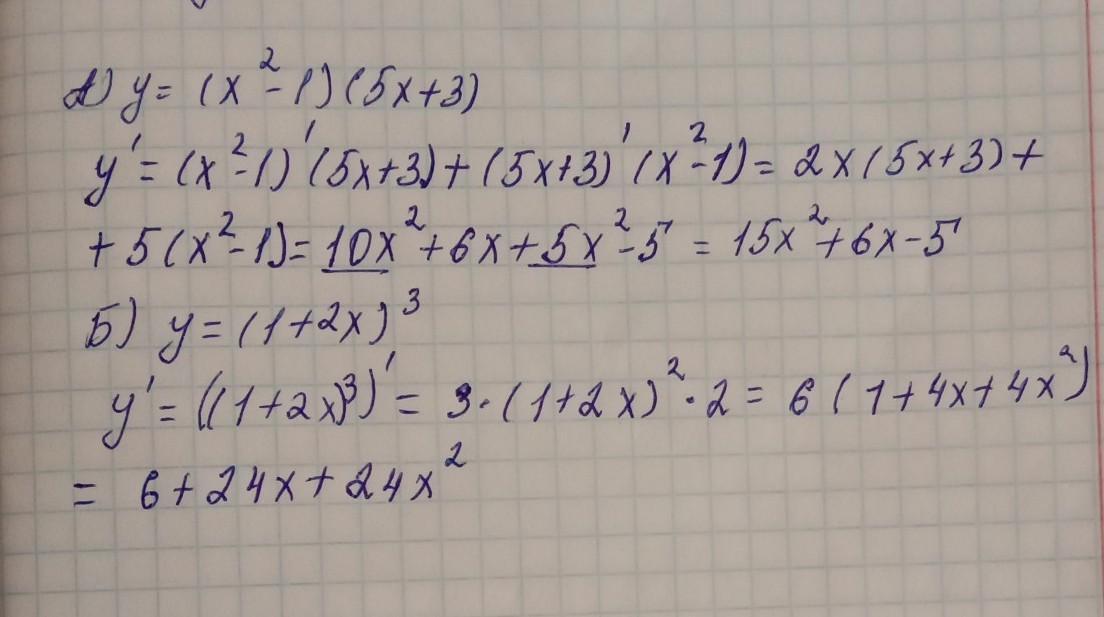 А) y = (x²-1)(5x+3)
y' = (x²-1)'(5x+3)+(5x+3)'(x²-1) = 2x(5x+3)+
+5(x²-1) = 10x²+6x+5x²-5 = 15x²+6x-5
Б) y = (1+2x)³
y' = ((1+2x)³)' = 3·(1+2x)²·2 = 6(1+4x+4x²)
= 6+24x+24x²